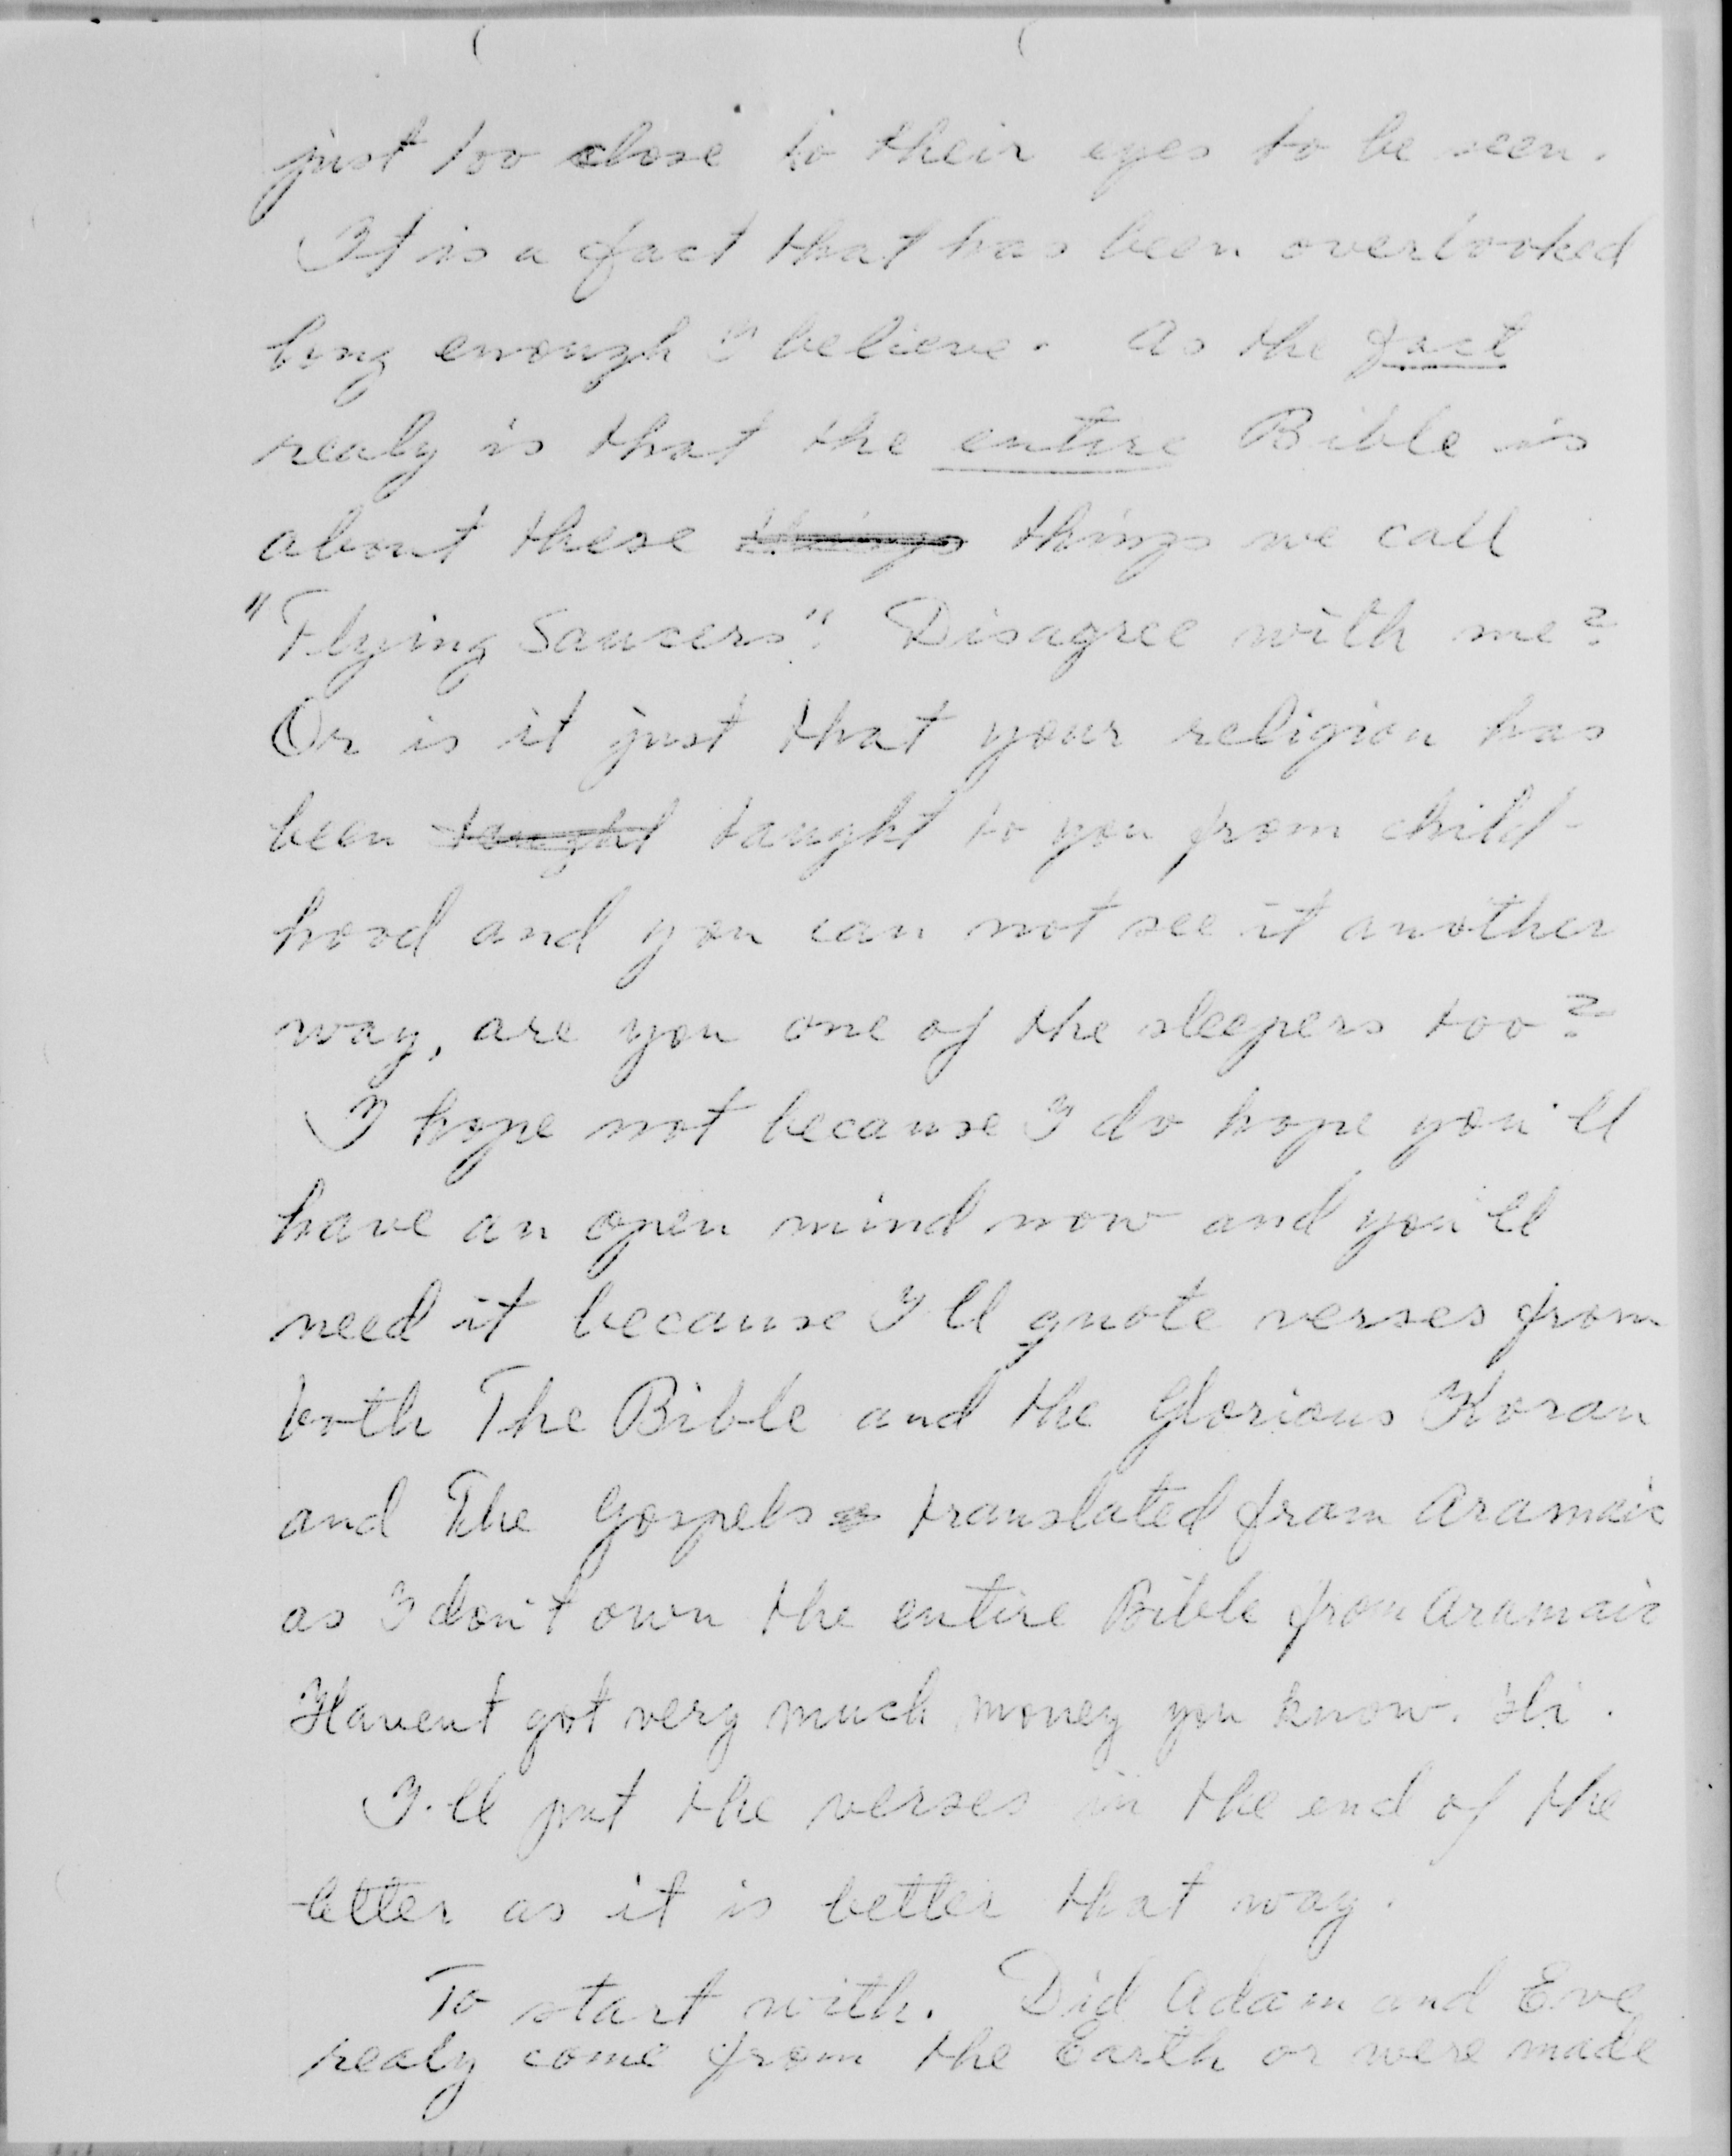 just too close to their eyes to be seen.
It is a fact that has been overlooked
long enough I believe. As the fact
realy is that the entire Bible is
about these things things we call
"Flying Saucers". Disagree with me?
Or is it just that your religion has
been taught taught to you from child-
hood and you can not see it another
way, are you one of the sleepers too?
I hope not because I do hope you'll
have an open mind now and you'll
need it because I'll quote verses from
both The Bible and the Glorious Koran
and The Gospels translated from Aramaic
as I don't own the entire Bible from Aramaic
Havent got very much money you know. Hi.
I'll put the verses in the end of the
letter as it is better that way.
To start with. Did Adam and Eve
realy come from the Earth or were made